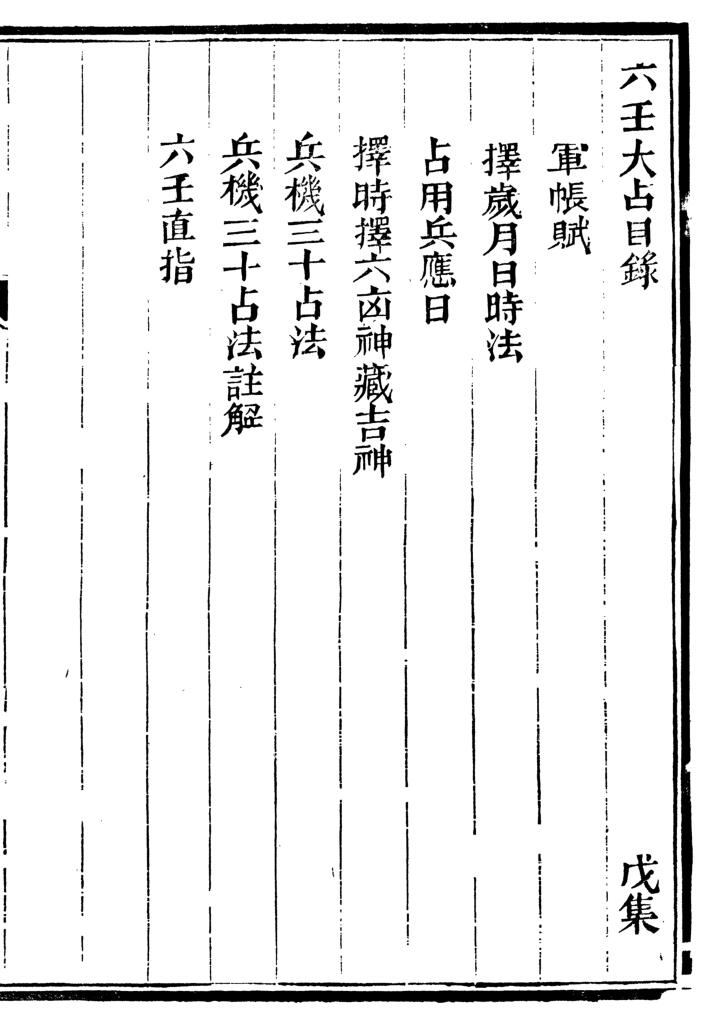 六壬大占目錄 戊集
軍帳賦
擇歲月日時法
占用兵應日
擇時擇六凶神藏吉神
兵機三十占法
兵機三十占法註解
六壬直指